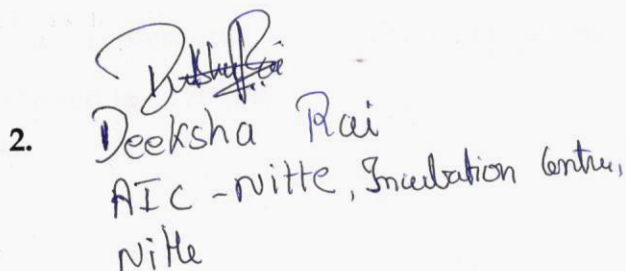 2.
Deeksha Rai
AIC - Nitte, Incubation Centre,
Nitte